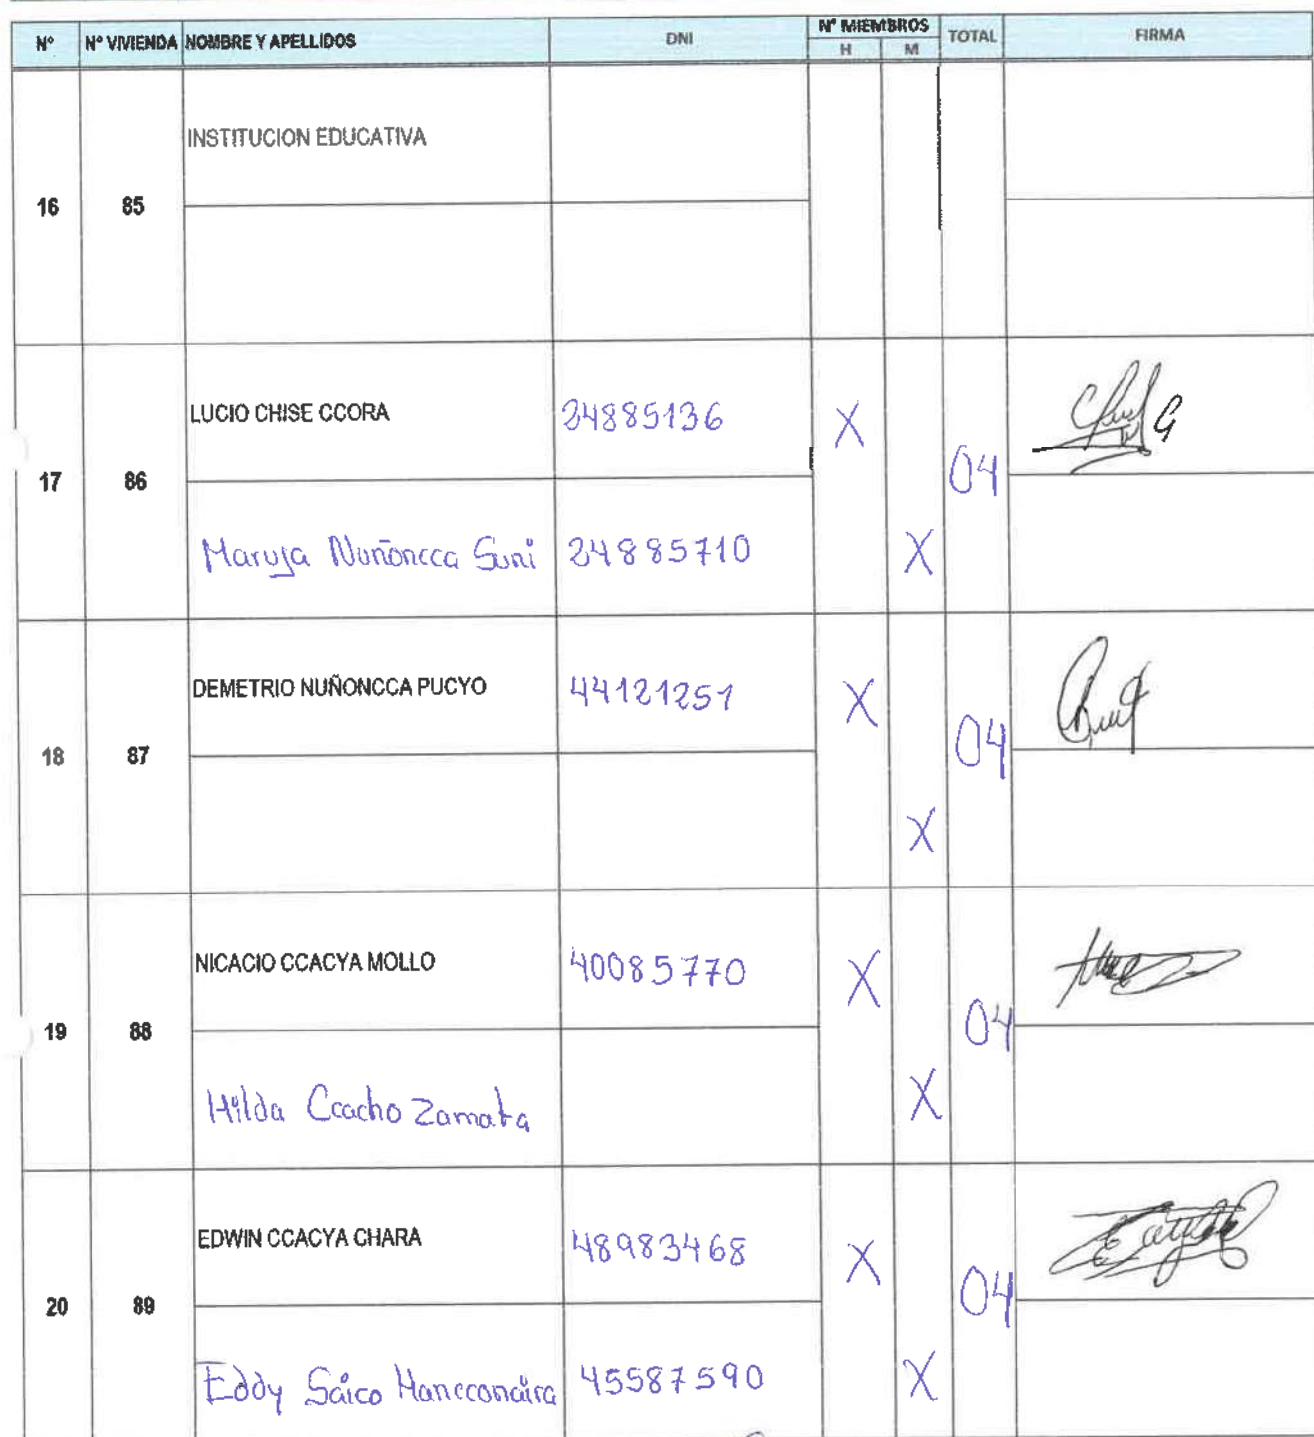 Nº Nº VIVIENDA NOMBRE Y APELLIDOS DNI Nº MIEMBROS TOTAL FIRMA
H M
INSTITUCION EDUCATIVA
16 85
LUCIO CHISE CCORA 24885136 X
17 86 04
Maruja Nuñoncca Suni 24885710 X
DEMETRIO NUÑONCCA PUCYO 44121251 X
18 87 04
X
NICACIO CCACYA MOLLO 40085770 X
19 88 04
Hilda Ccacho Zamata X
EDWIN CCACYA CHARA 48983468 X
20 89 04
Eddy Saico 45587590 X